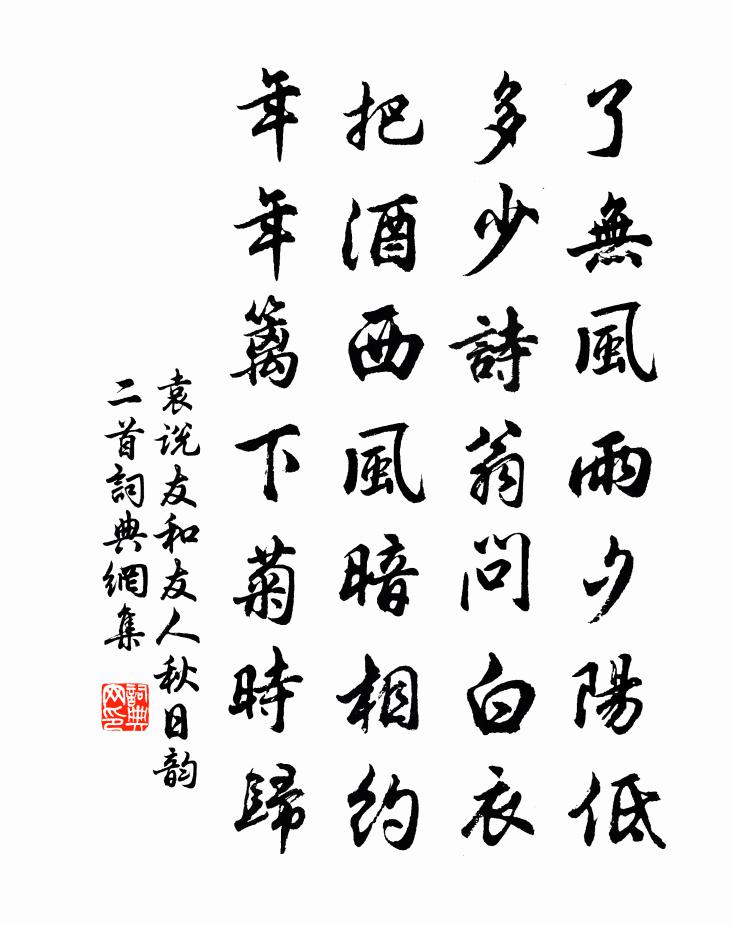 了無風雨夕陽低
多少詩翁問白衣
把酒西風暗相約
年年籬下菊時歸
袁说友和友人秋日韵
二首詞典網集
詞典
网印